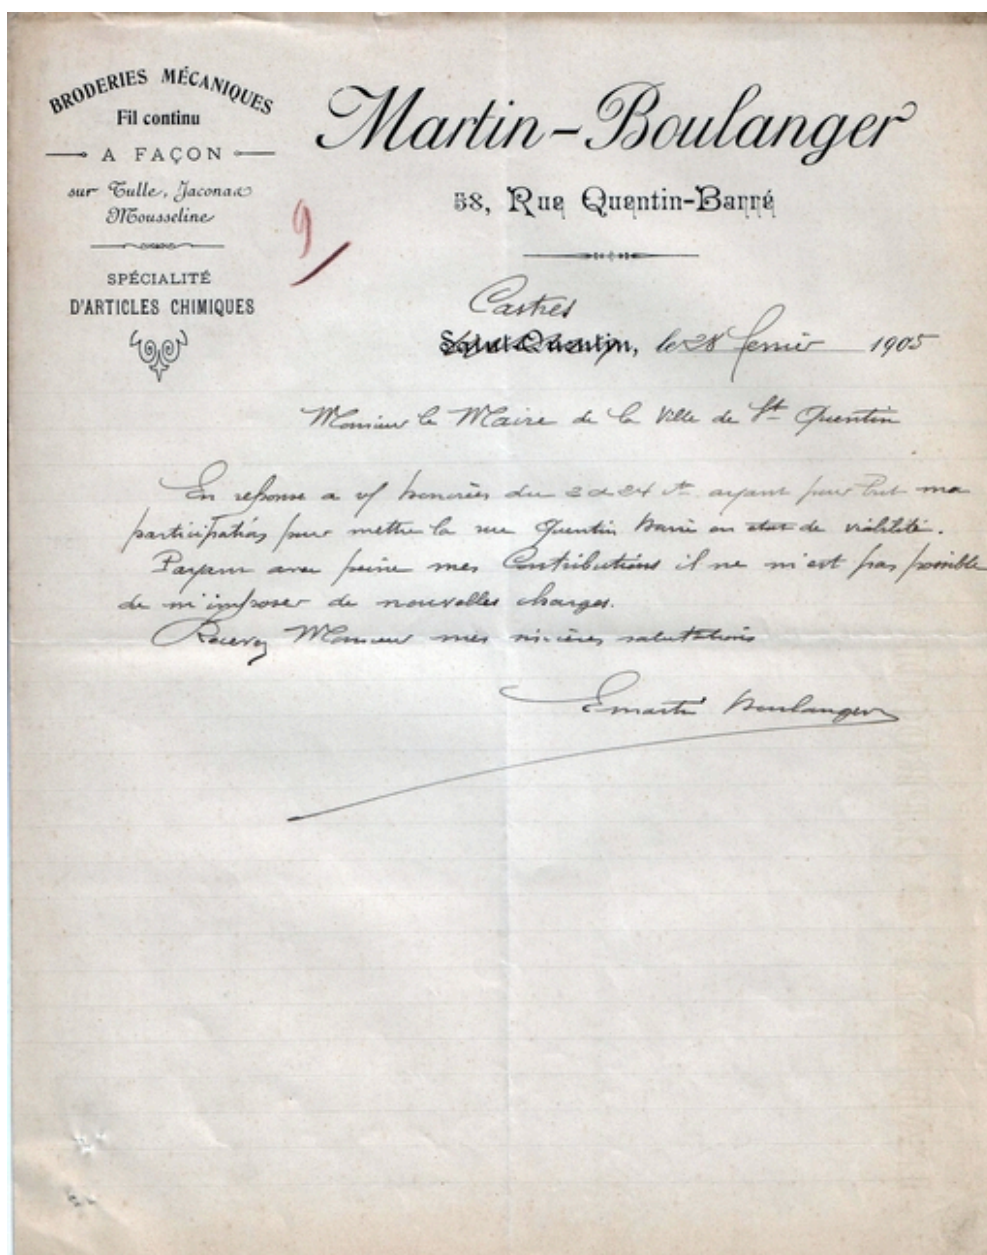 BRODERIES MÉCANIQUES
Fil continu
A FAÇON
sur Tulle, Jaconas
Mousseline
SPÉCIALITÉ
D'ARTICLES CHIMIQUES
Martin-Boulanger
58, Rue Quentin-Barré
9
Castres
Saint-Quentin, le 28 fevrier 1905
Monsieur le Maire de la Ville de St Quentin
En reponse a v/ honorées du 2 & 24 ct ayant pour but ma
participation pour mettre la rue Quentin Barré en etat de viabilité.
Payant avec peine mes Contributions il ne m'est pas possible
de m'imposer de nouvelles charges.
Recevez Monsieur mes sincères salutations
E Martin Boulanger